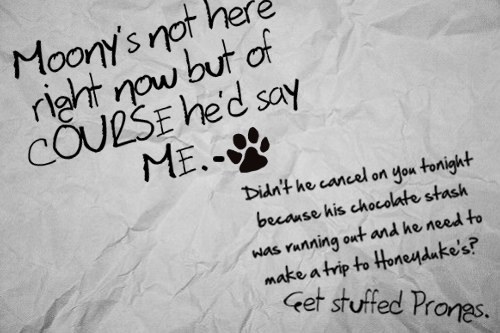 Moony's not here
right now but of
COURSE he'd say
ME. -
Didn't he cancel on you tonight
because his chocolate stash
was running out and he need to
make a trip to Honeyduke's?
Get stuffed Prongs.